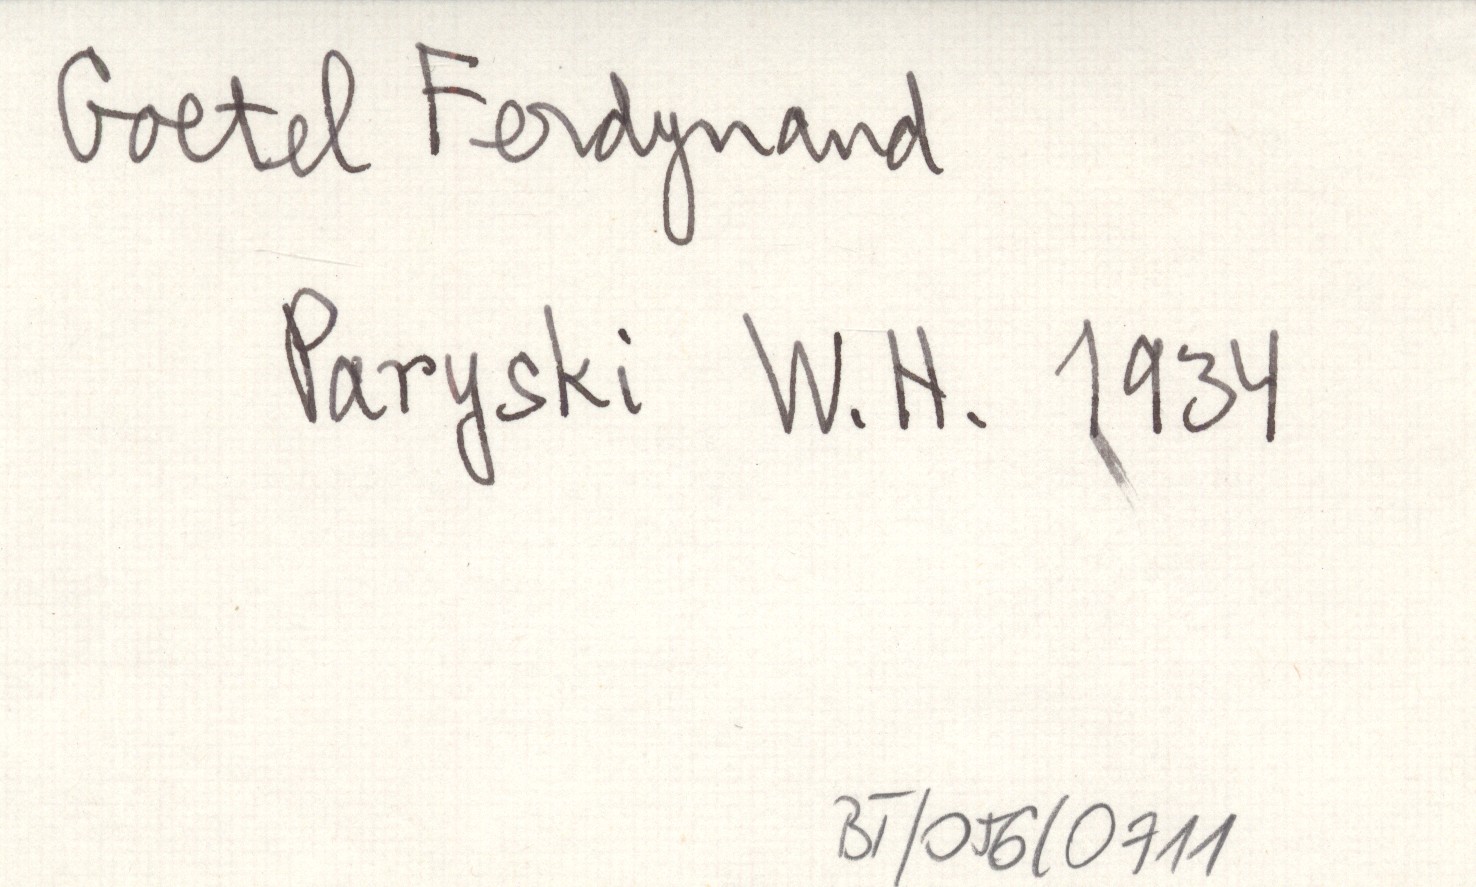 Goetel Ferdynand
Paryski W.H. 1934
BT/056/0711